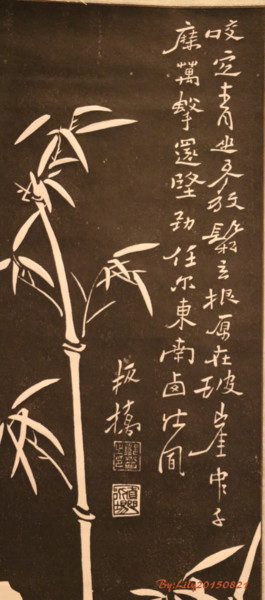 咬定青山不放鬆立根原在破崖中千
磨萬擊還堅勁任尔東南西北風
板橋
By:Lily20150823